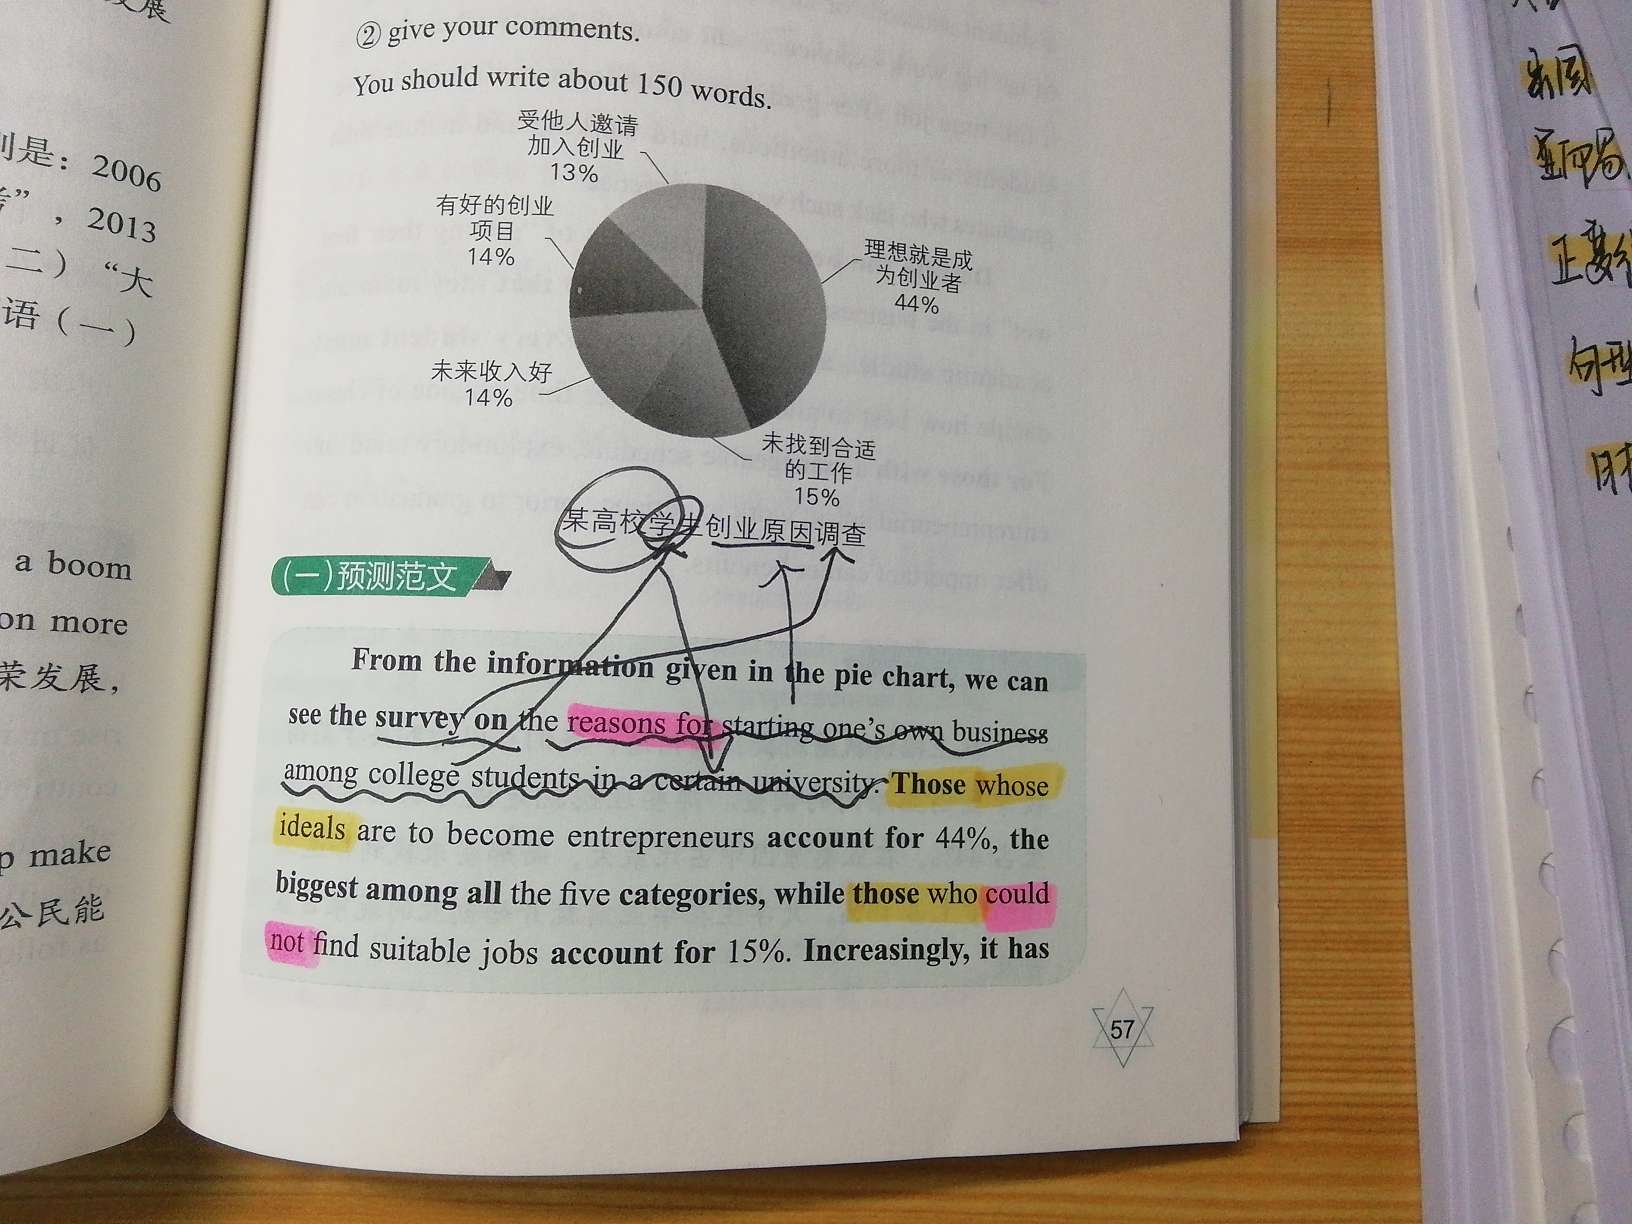 发展
则是：2006
”，2013
二）“大
语（一）
a boom
on more
荣发展，
p make
公民能
② give your comments.
You should write about 150 words.
受他人邀请
加入创业
13%
有好的创业
项目
14%
理想就是成
为创业者
44%
未来收入好
14%
未找到合适
的工作
15%
某高校学生创业原因调查
（一）预测范文
From the information given in the pie chart, we can
see the survey on the reasons for starting one’s own business
among college students in a certain university. Those whose
ideals are to become entrepreneurs account for 44%, the
biggest among all the five categories, while those who could
not find suitable jobs account for 15%. Increasingly, it has
57
句型